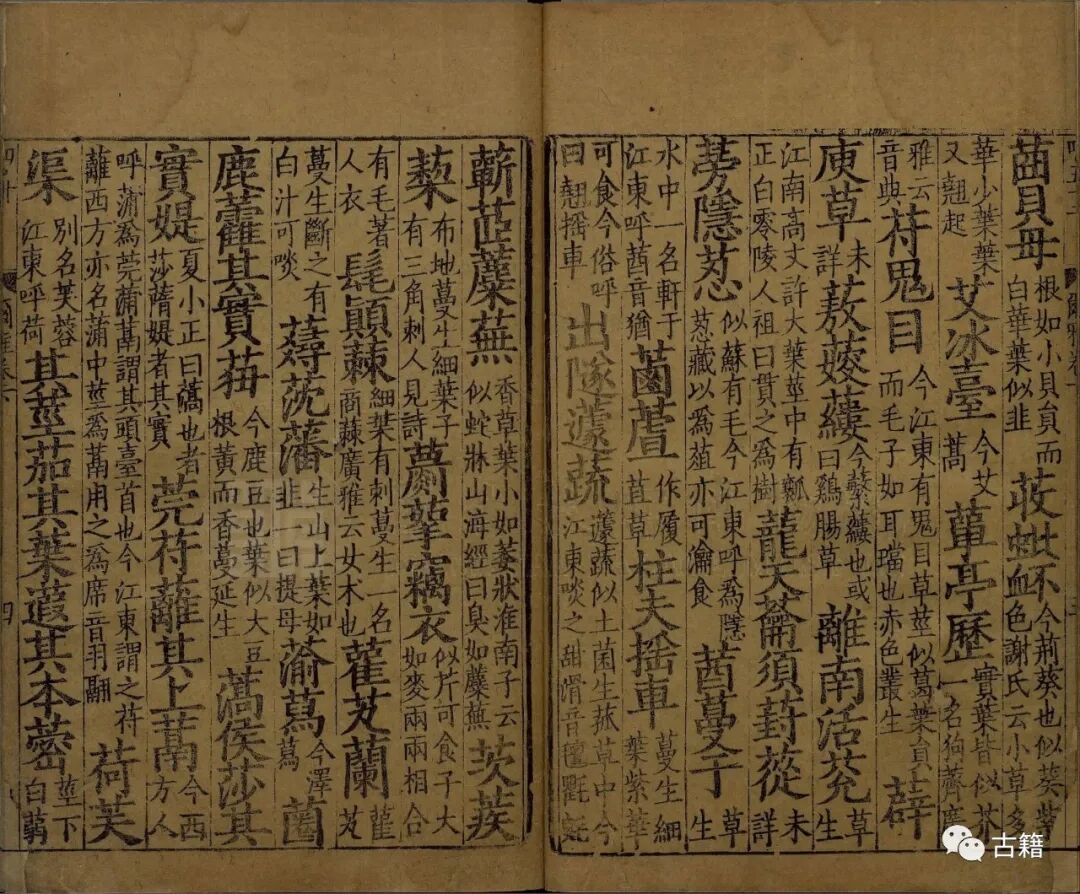 莔貝母根如小貝貟而白華葉似韭荍蚍衃今荊葵也似葵紫色謝氏云小草多
華少葉葉又翹起艾冰臺今艾蒿蕇亭歷實葉皆似芥一名狗薺廣
雅云音典苻鬼目今江東有鬼目草莖似葛葉貟而毛子如耳璫也赤色叢生薜
庾草未詳蔜薞蔞今蘩蔞也或曰鷄腸草離南活莌草生
江南高丈許大葉莖中有瓤正白零陵人祖曰貫之爲樹蘢天蘥須葑蓯未詳
蒡隱荵似蘇有毛今江東呼爲隱荵藏以爲葅亦可瀹食莤蔓于草生
水中一名軒于江東呼莤音猶菌蘆作履苴草柱夫搖車蔓生細葉紫華
可食今俗呼曰翹搖車出隧蘧蔬蘧蔬似土菌生菰草中今江東啖之甜滑音氊氍㲣
蘄茝蘪蕪香草葉小如萎狀淮南子云似蛇牀山海經曰臭如蘪蕪茨蒺
藜布地蔓生細葉子有三角刺人見詩蘮蒘竊衣似芹可食子大如麥兩兩相合
有毛著人衣髦顛蕀細葉有刺蔓生一名商蕀廣雅云女木也雚芄蘭雚芄
蔓生斷之有白汁可啖蕁莐藩生山上葉如韭一曰提母蕍蕮今澤蕮莔
鹿藿其實莥今鹿豆也葉似大豆根黃而香蔓延生薃侯莎其
實媞夏小正曰薃也者莎蓨媞者其實莞苻蘺其上蒚今西方人
呼蒲爲莞蒲蒚謂其頭臺首也今江東謂之苻蘺西方亦名蒲中莖爲蒚用之爲席音羽翮荷芙
渠別名芙蓉江東呼荷其莖茄其葉蕸其本蔤莖下白蒻
四
古籍